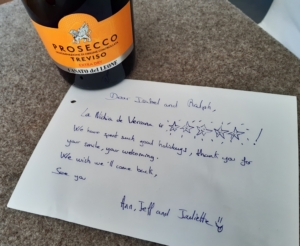 PROSECCO
TREVISO
CASATO del LEONE
Dear Isabel and Ralph,
La Nishia de Vernana is ☆☆☆☆☆ !
We have spent such good holidays, thank you for
your smile, your welcoming.
We wish we'll come back,
See you
Ann, Jeff and Juliette